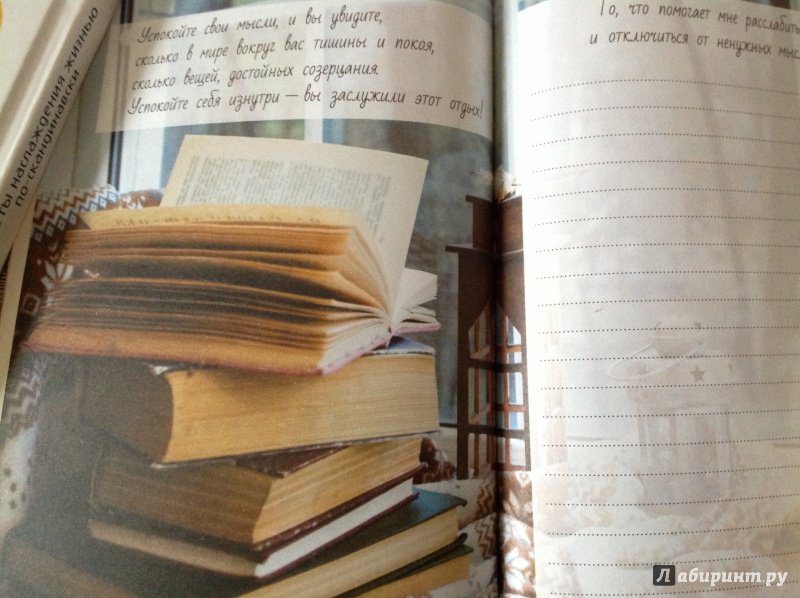 ты наслаждения жизнью
по-скандинавски
Успокойте свои мысли, и вы увидите,
сколько в мире вокруг вас тишины и покоя,
сколько вещей, достойных созерцания.
Успокойте себя изнутри — вы заслужили этот отдых!
То, что помогает мне расслабить
и отключиться от ненужных мыс
Лабиринт.ру